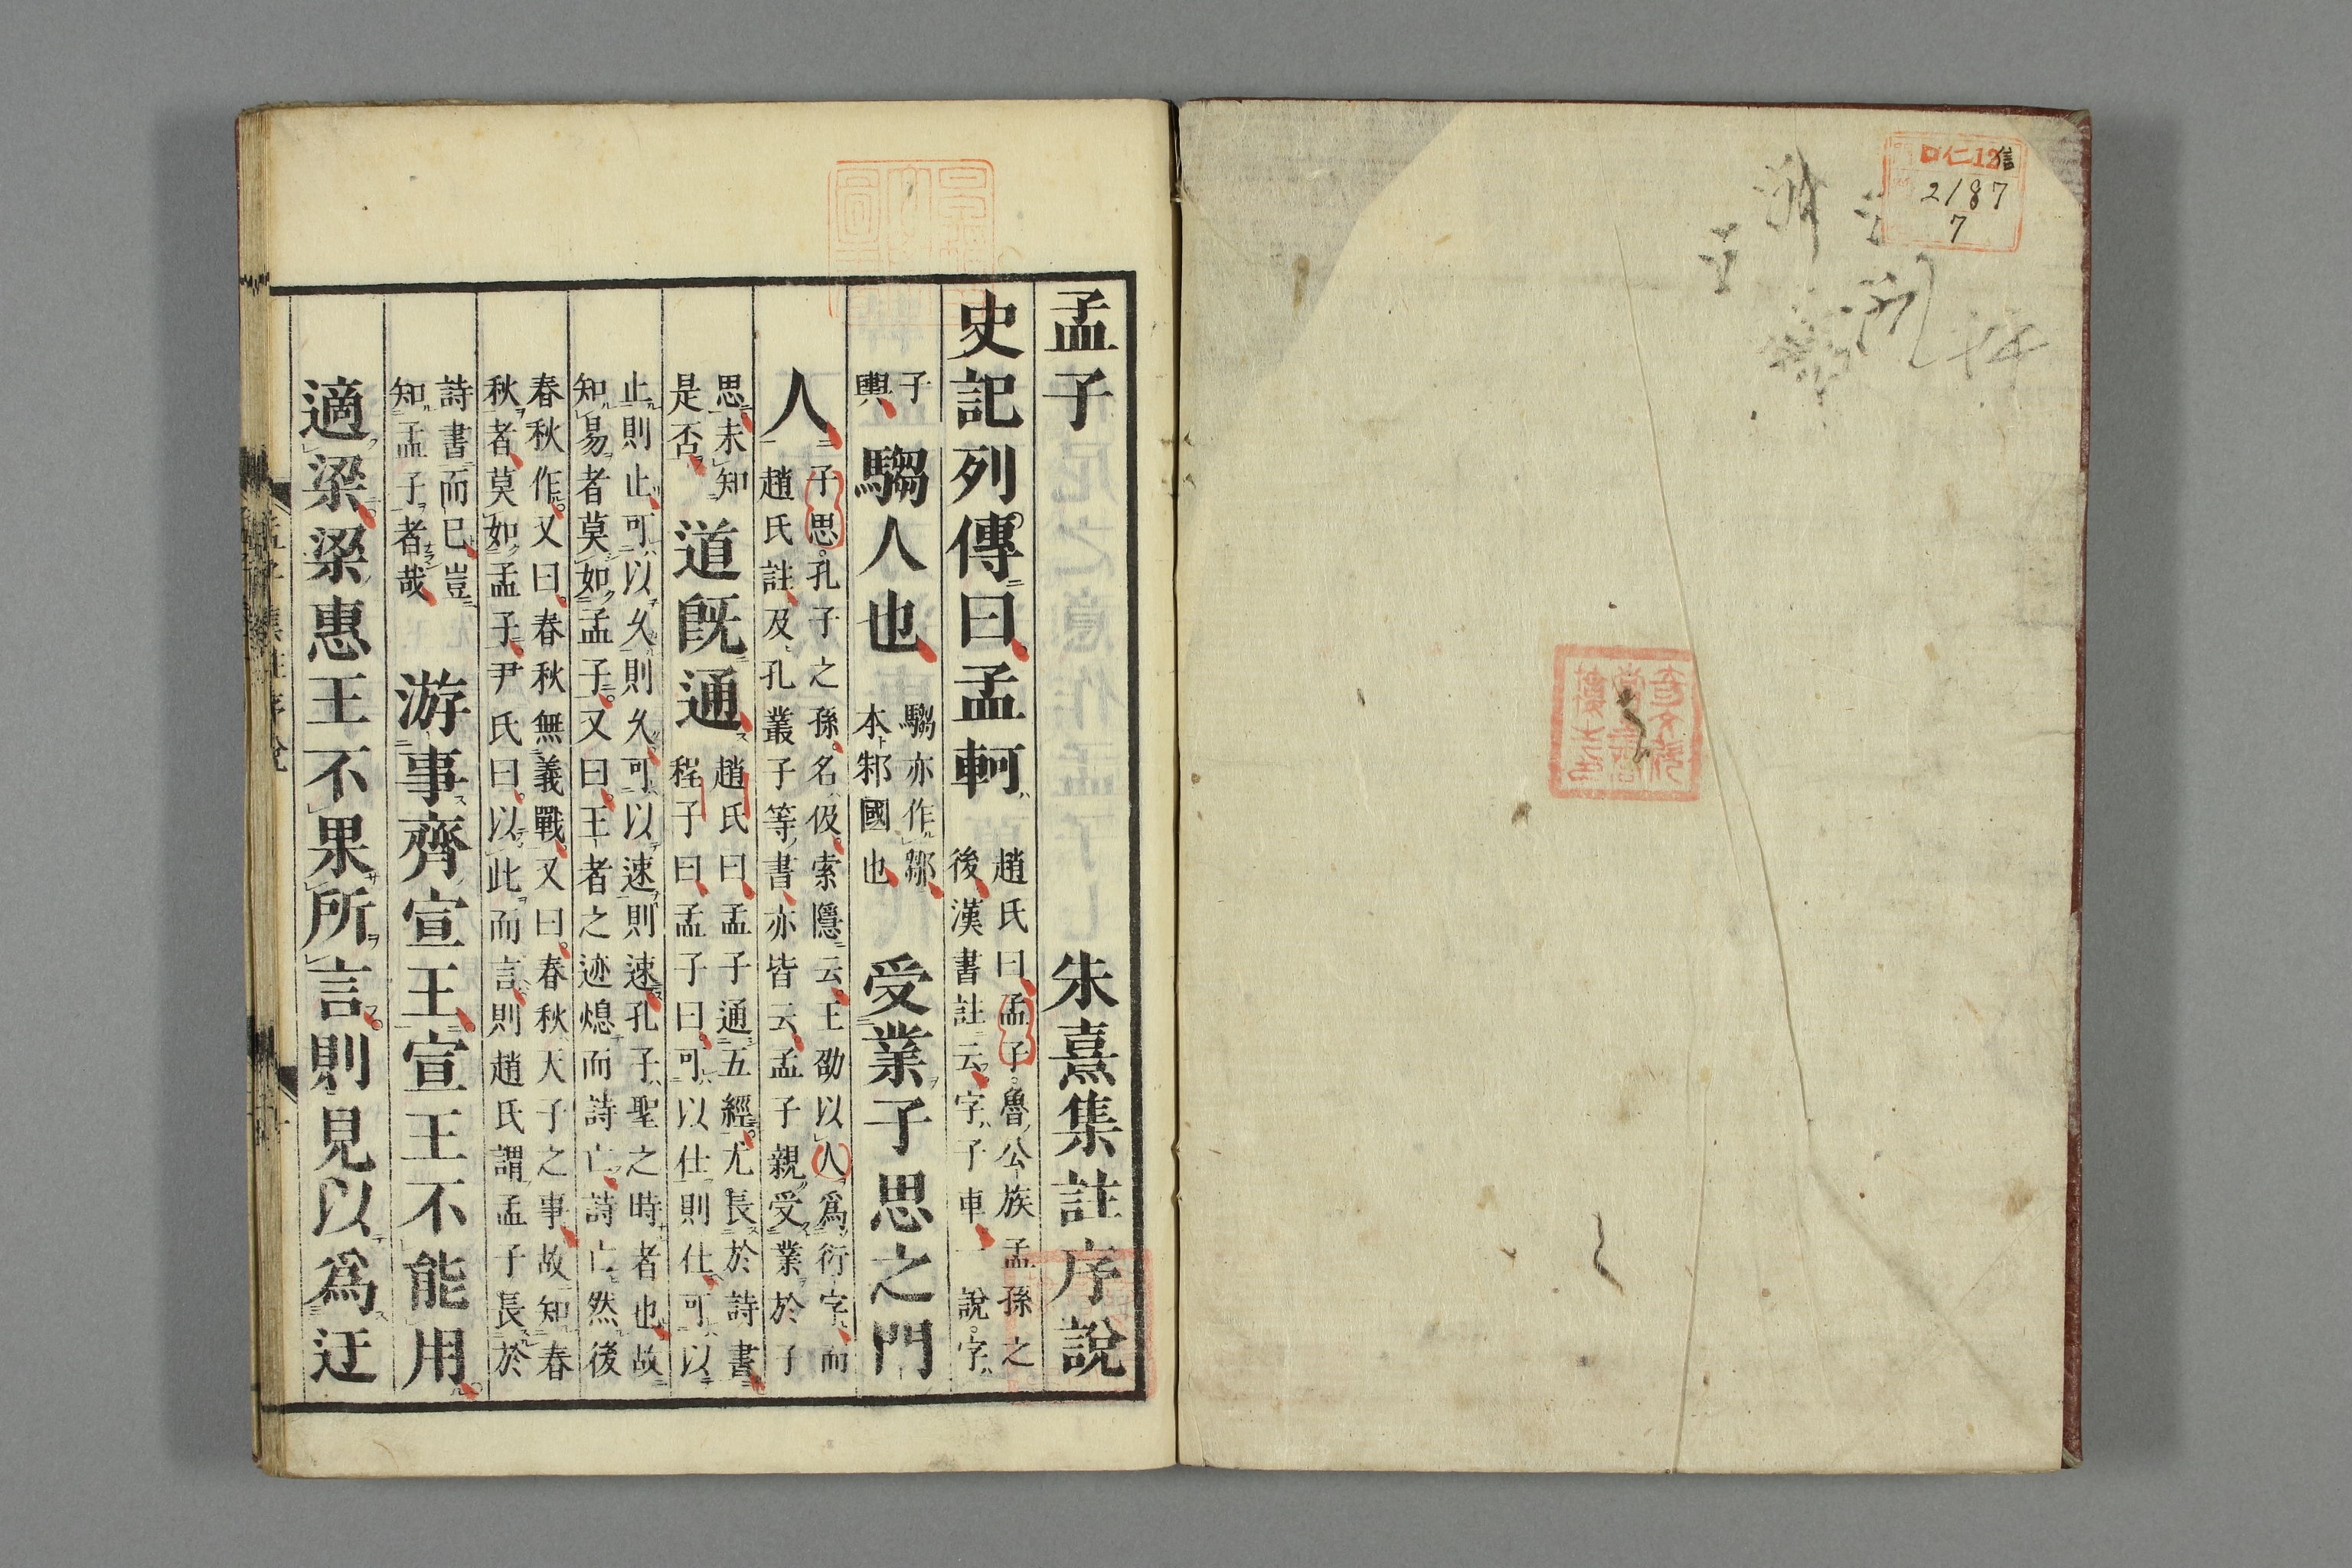 口仁12信
2187
7
孟子 朱熹集註序說
史記列傳曰孟軻 趙氏曰孟子魯公族孟孫之
後漢書註云字子車一說字
子
輿 騶人也 騶亦作鄒
本邾國也 受業子思之門
人 子思孔子之孫名伋索隱云王劭以人爲衍字而
趙氏註及孔叢子等書亦皆云孟子親受業於子
思未知
是否 道旣通 趙氏曰孟子通五經尤長於詩書
程子曰孟子曰可以仕則仕可以
止則止可以久則久可以速則速孔子聖之時者也故
知易者莫如孟子又曰王者之迹熄而詩亡詩亡然後
春秋作又曰春秋無義戰又曰春秋天子之事故知春
秋者莫如孟子尹氏曰以此而言則趙氏謂孟子長於
詩書而已豈
知孟子者哉 游事齊宣王宣王不能用
適梁梁惠王不果所言則見以爲迂